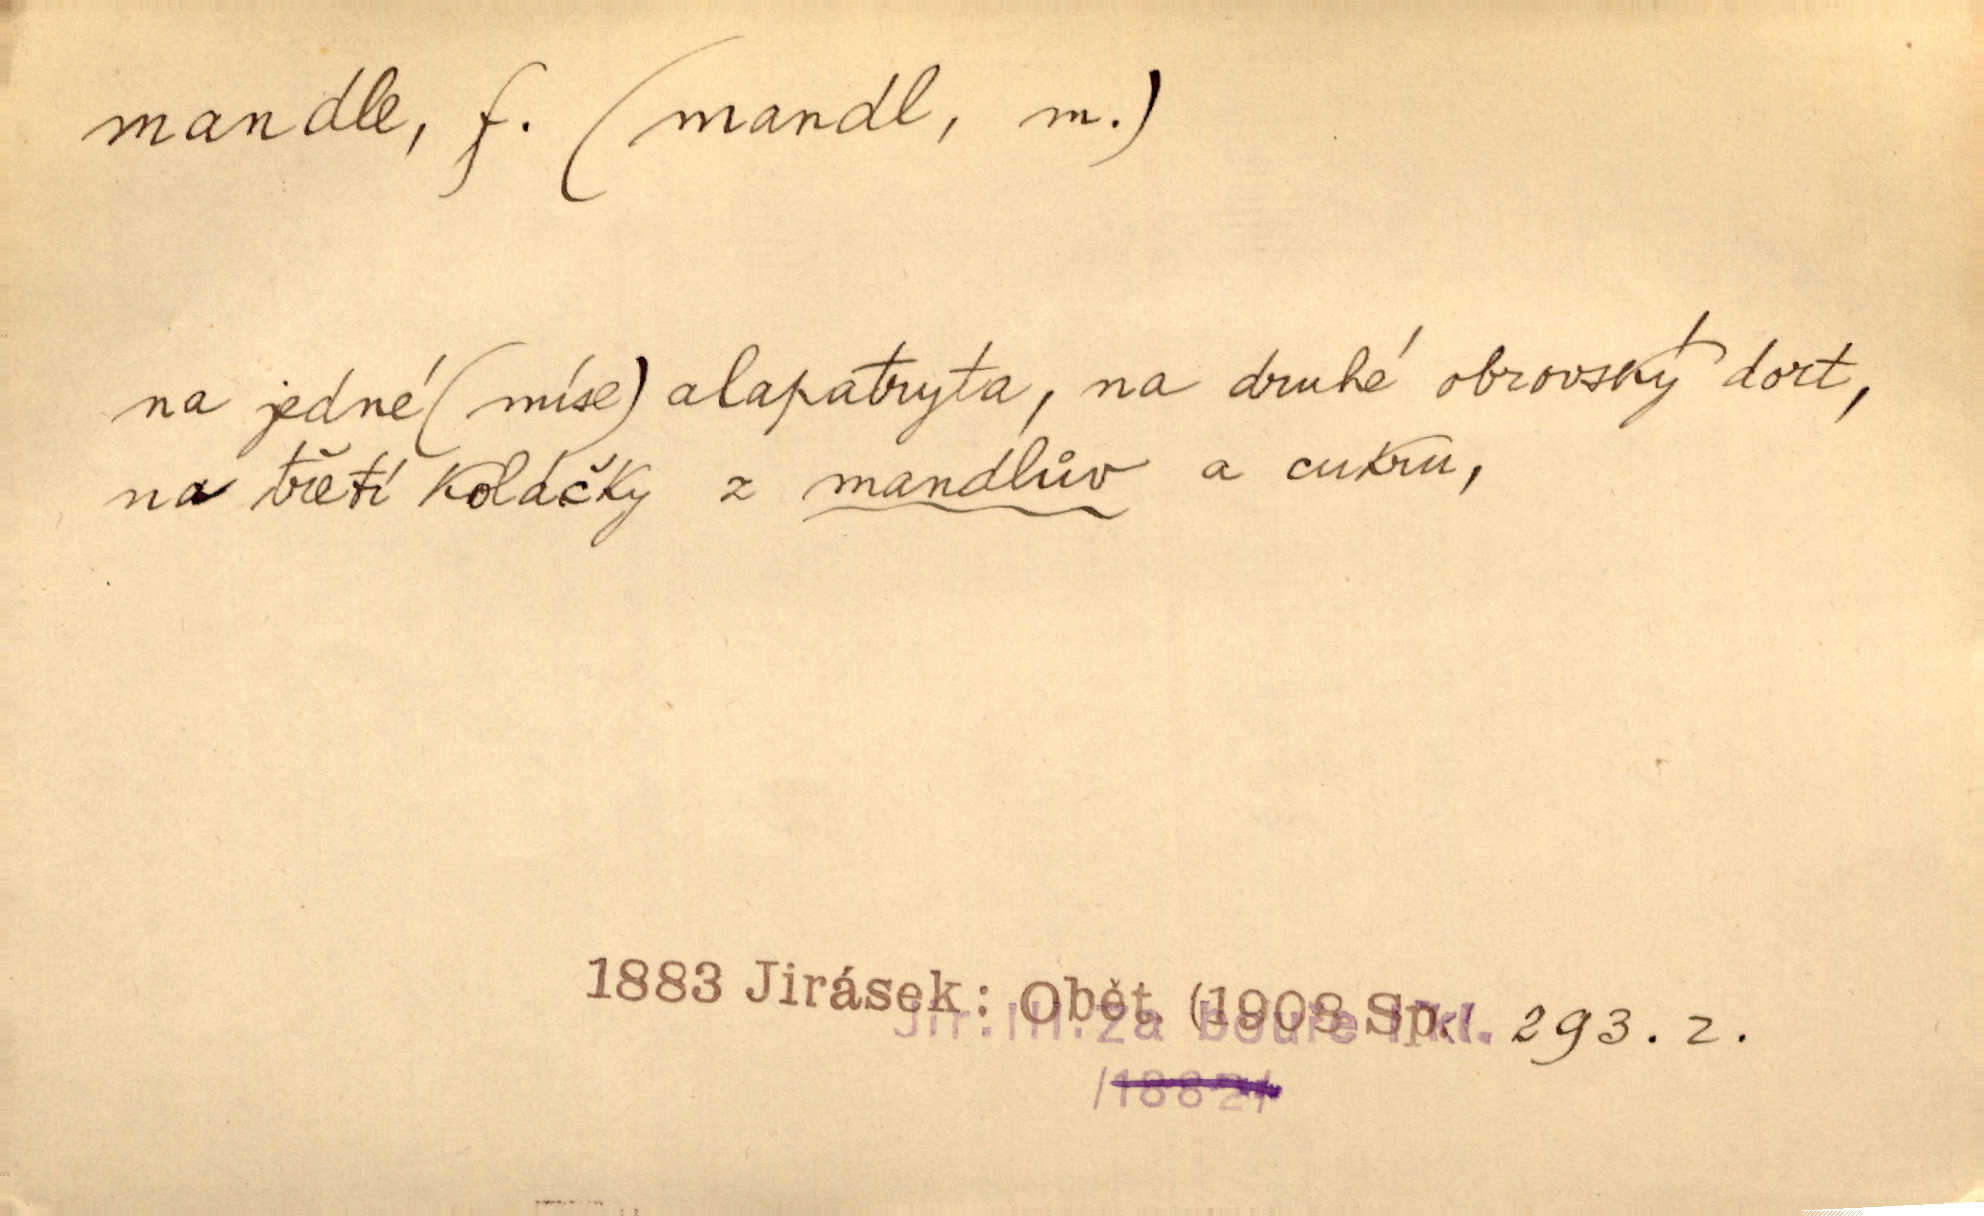 mandle, f. (mandl, m.)
na jedné (míse) alapatryta, na druhé obrovský dort,
na třetí koláčky z mandlův a cukru,
1883 Jirásek: Obět. (1908 Sp. 293. 2.
Jir. III. Za bouře
/1882/